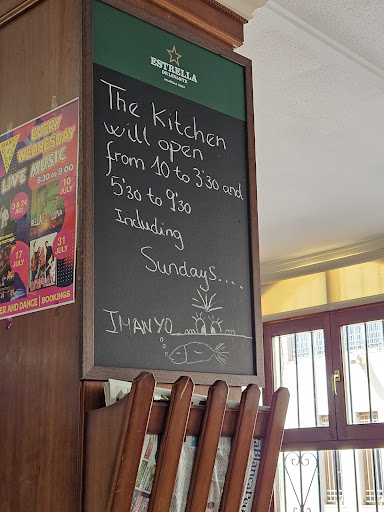 ESTRELLA
DE LEVANTE
The Kitchen
will open
from 10 to 3'30 and
5'30 to 9'30
Including
Sundays....
JMANYO
EVERY
WEDNESDAY
LIVE MUSIC
8:30 to 9:00
& 24
JULY
10
JULY
17
JULY
31
JULY
ER AND DANCE | BOOKINGS